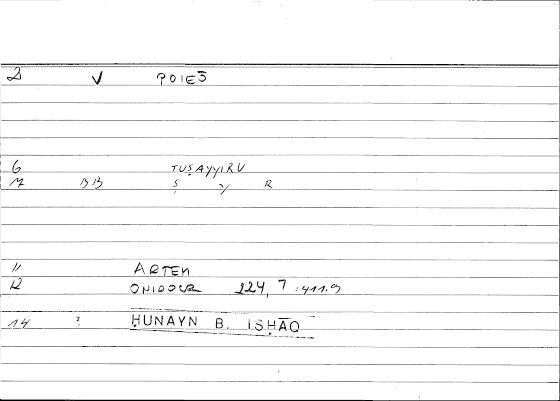 2 V POIES
6 TUṢAYYIRU
M BB Ṣ Y R
11 ARTEM
12 ONIROCR 224, 7 : 411.9
14 ? ḤUNAYN B. ISḤĀQ